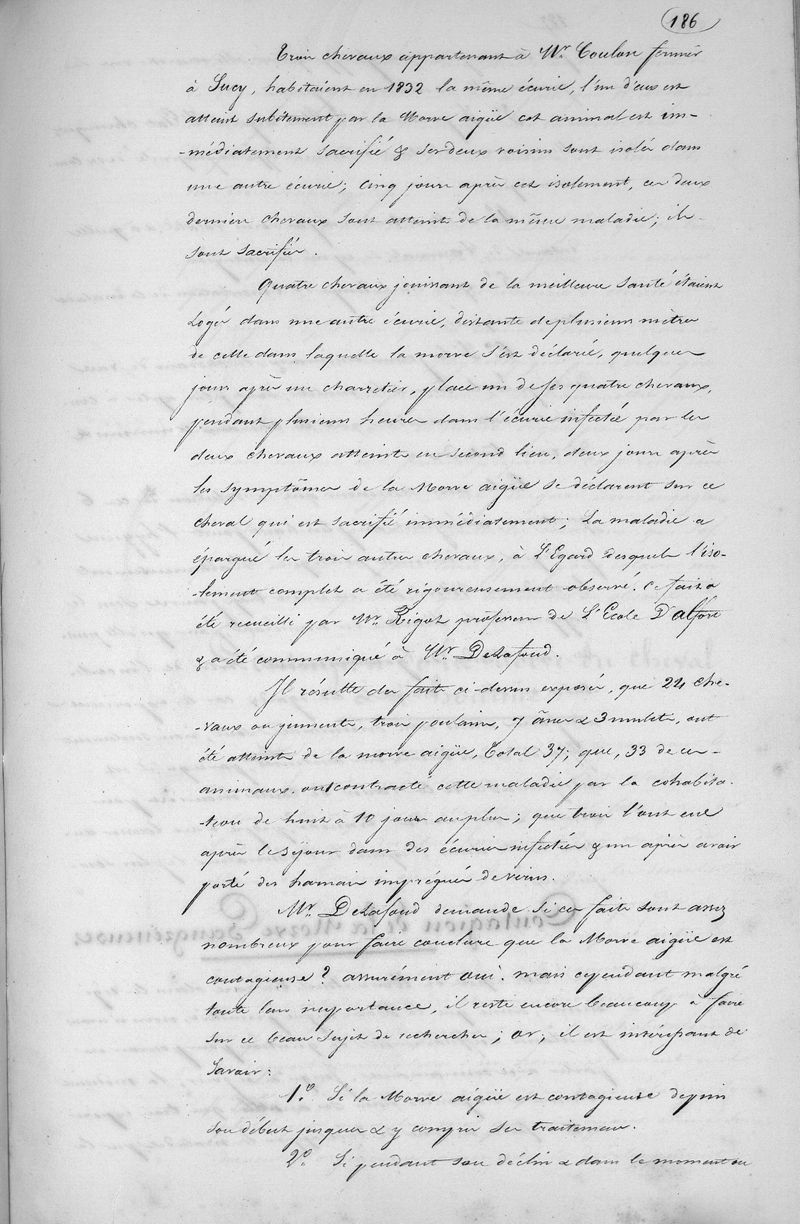 186
Trois chevaux appartenant à Mr. Toulon fermier
à Sucy, habitaient en 1832 la même écurie, l'un d'eux est
atteint subitement par la Morve aigüe cet animal est im-
-médiatement sacrifié & ses deux voisins sont isolés dans
une autre écurie; cinq jours après cet isolement, ces deux
derniers chevaux sont atteints de la même maladie; ils
sont sacrifiés.
Quatre chevaux jouissant de la meilleure santé étaient
Logés dans une autre écurie, distante de plusieurs mètres
de celle dans laquelle la morve s'est déclarée, quelques
jours après un charretier, place un de ses quatre chevaux,
pendant plusieurs heures dans l'écurie infectée par les
deux chevaux atteints en second lieu, deux jours après
les symptômes de la Morve aigüe se déclarent sur ce
cheval qui est sacrifié immédiatement; La maladie a
épargné les trois autres chevaux, à L'Egard desquels l'iso-
-lement complet a été rigoureusement observé. Ce fait a
été recueilli par Mr. Rigot professeur de L'Ecole D'alfort
& a été communiqué à Mr. Delafond.
Il résulte des faits ci-dessus exposés, que 24 che-
-vaux ou juments, trois poulains, 7 ânes & 3 mulets, ont
été atteints de la morve aigüe, Total 37; que, 33 de ces
animaux ont contracté cette maladie par la cohabita-
-tion de huit à 10 jours au plus; que trois l'ont eue
après le séjour dans des écuries infectées & un après avoir
porté des harnais imprégnés de virus.
Mr. Delafond demande si ces faits sont assez
nombreux pour faire conclure que la Morve aigüe est
contagieuse? assurément oui. mais cependant malgré
toute leur importance, il reste encore beaucoup à faire
sur ce beau sujet de recherches; or; il est intéressant de
Savoir:
1.° Si la Morve aigüe est contagieuse depuis
son début jusques & y compris son traitement.
2.° Si pendant son déclin & dans le moment où